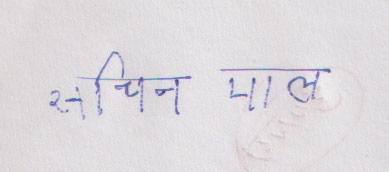 सचिन पाल